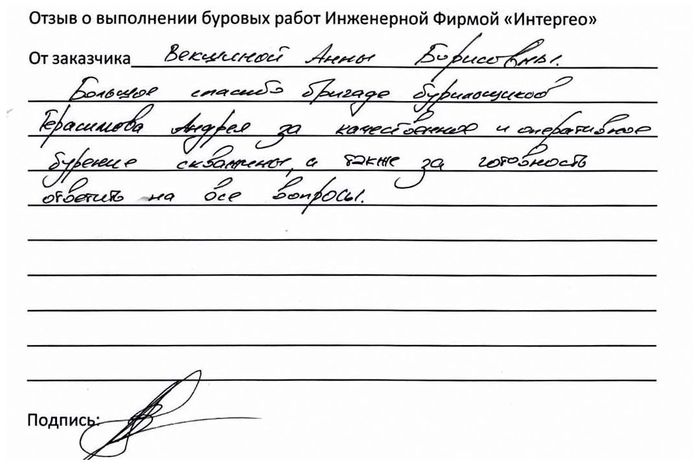 Отзыв о выполнении буровых работ Инженерной Фирмой «Интергео»
От заказчика Векшиной Анны Борисовны.
Большое спасибо бригаде бурильщиков
Герасимова Андрея за качественное и оперативное
бурение скважины, а также за готовность
ответить на все вопросы.
Подпись: